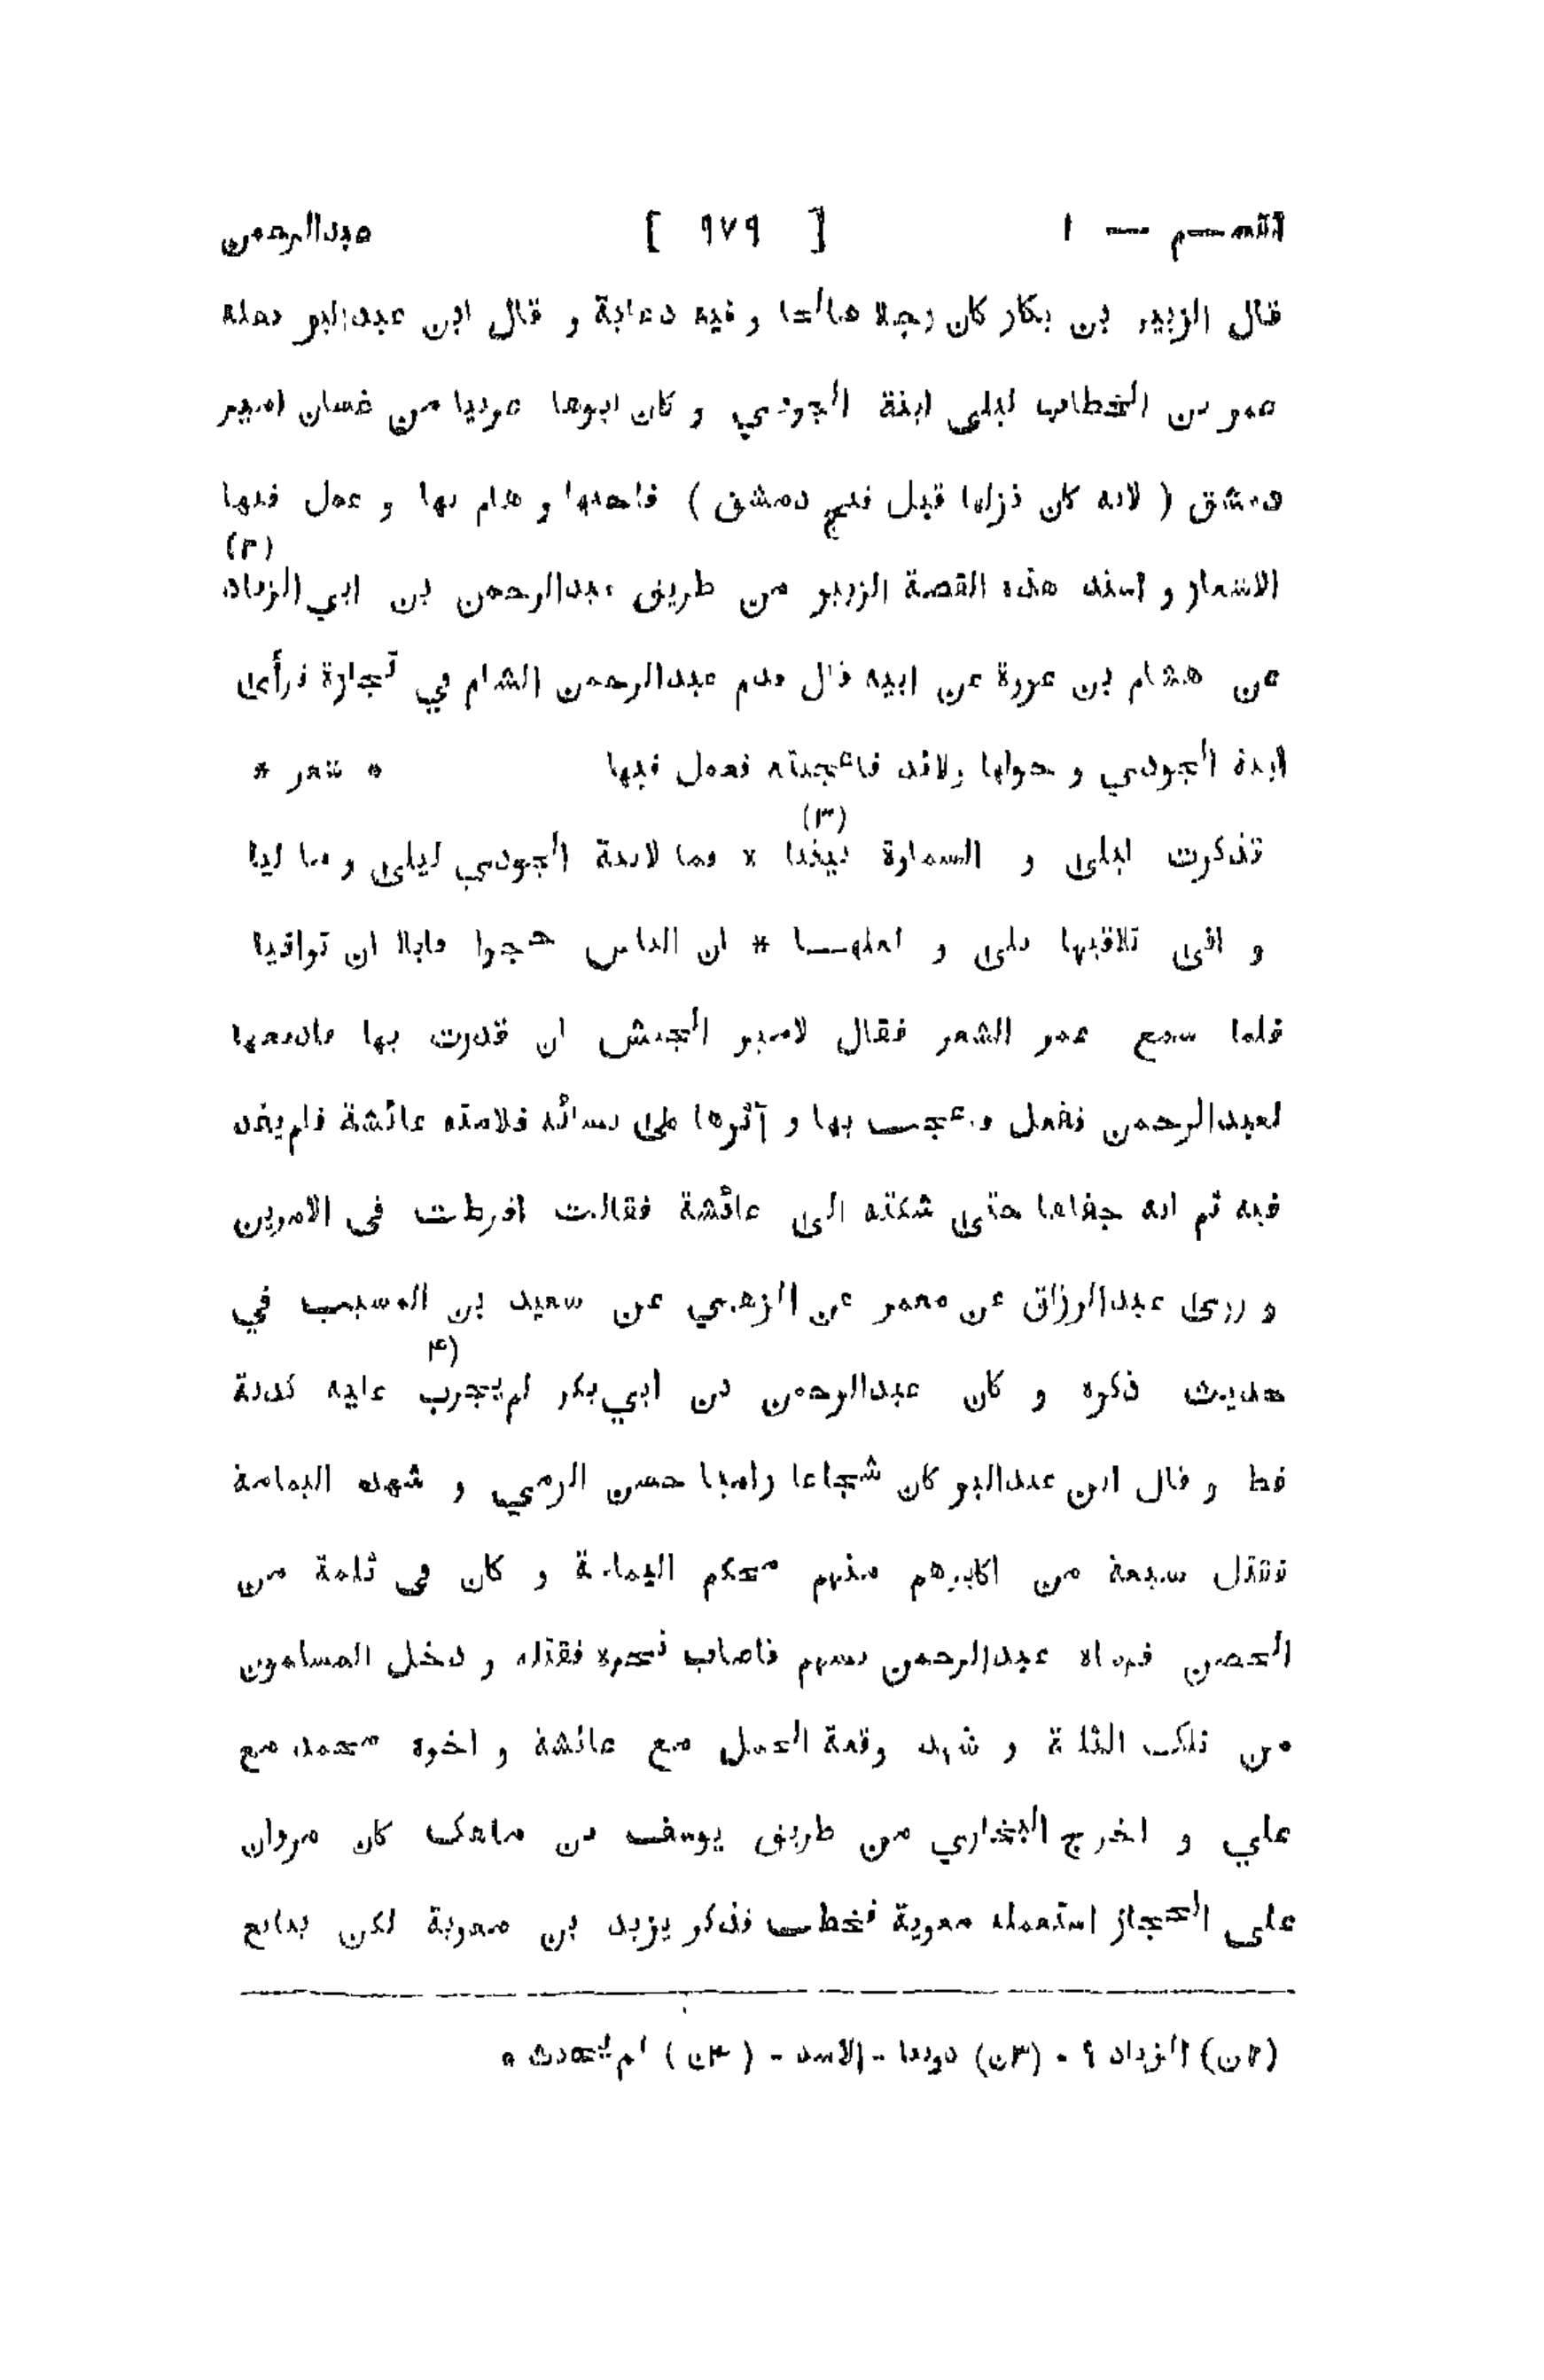 القسم — ١ [ ٩٧٩ ] عبدالرحمن
قال الزبير بن بكار كان رجلا صالحا و فيه دعابة و قال ابن عبدالبر نفله
عمر بن الخطاب ليلى ابنة الجودي و كان ابوها عربيا من غسان امير
دمشق ( لانه كان نزلها قبل فتح دمشق ) فاحبها و هام بها و عمل فيها
(٢)
الاشعار و اسند هذه القصة الزبير من طريق عبدالرحمن بن ابي الزناد
عن هشام بن عروة عن ابيه قال قدم عبدالرحمن الشام في تجارة فرأى
ابنة الجودي و حولها ولائد فاعجبته فعمل فيها * شعر *
(٣)
تذكرت ليلى و السماوة بيننا * فما لابنة الجودي ليلى و ما ليا
و انى تلاقيها بلى و لعلهــا * ان الناس حجوا قابلا ان توافيا
فلما سمع عمر الشعر فقال لامير الجيش ان قدرت بها فادفعها
لعبدالرحمن ففعل و عجب بها و آثرها على نسائه فلامته عائشة فلم يفد
فيه ثم انه جفاها حتى شكته الى عائشة فقالت افرطت فى الامرين
و روى عبدالرزاق عن معمر عن الزهري عن سعيد بن المسيب في
(٤
حديث ذكره و كان عبدالرحمن بن ابي بكر لم يجرب عليه كذبة
قط و قال ابن عبدالبر كان شجاعا راميا حسن الرمي و شهد اليمامة
فقتل سبعة من اكابرهم منهم محكم اليمامة و كان في ثلمة من
الحصن فرماه عبدالرحمن بسهم فاصاب نحره فقتله و دخل المسلمون
من تلك الثلمة و شهد وقعة الجمل مع عائشة و اخوه محمد مع
علي و اخرج البخاري من طريق يوسف بن ماهك كان مروان
على الحجاز استعمله معوية فخطب فذكر يزيد بن معوية لكن يبايع
(٢ن) الزياد ؟ - (٣ن) دونها - الاسد - ( ٤ن ) لم يحدث *